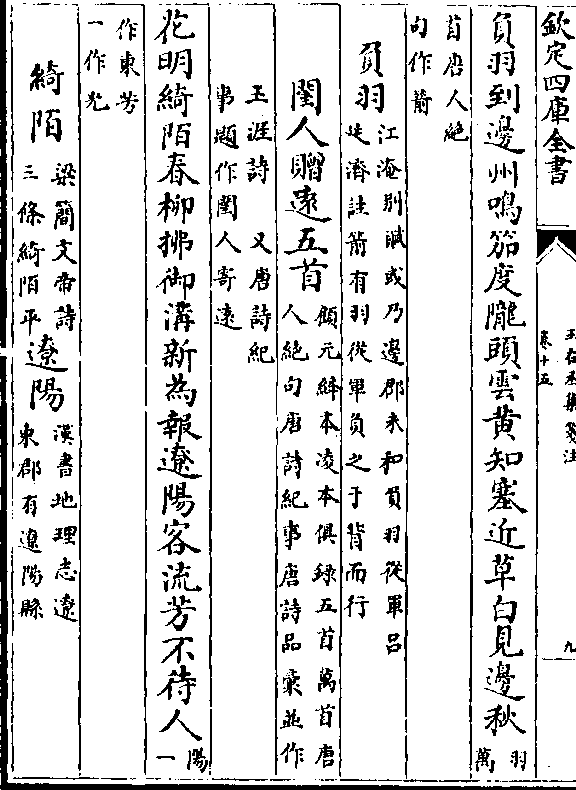 欽定四庫全書
王右丞集箋注
卷十五
九
負羽到邊州鳴笳度隴頭雲黃知塞近草白見邊秋
羽萬
首唐人絶
句作箭
負羽
江淹別賦或乃邊郡未和負羽從軍呂
延濟註箭有羽從軍負之于背而行
閨人贈遠五首
顧元緯本凌本俱錄五首萬首唐
人絶句唐詩紀事唐詩品彙並作
王涯詩 又唐詩紀
事題作閨人寄遠
花明綺陌春柳拂御溝新為報遼陽客流芳不待人
陽一
作東芳
一作光
綺陌
梁簡文帝詩
三條綺陌平
遼陽
漢書地理志遼
東郡有遼陽縣